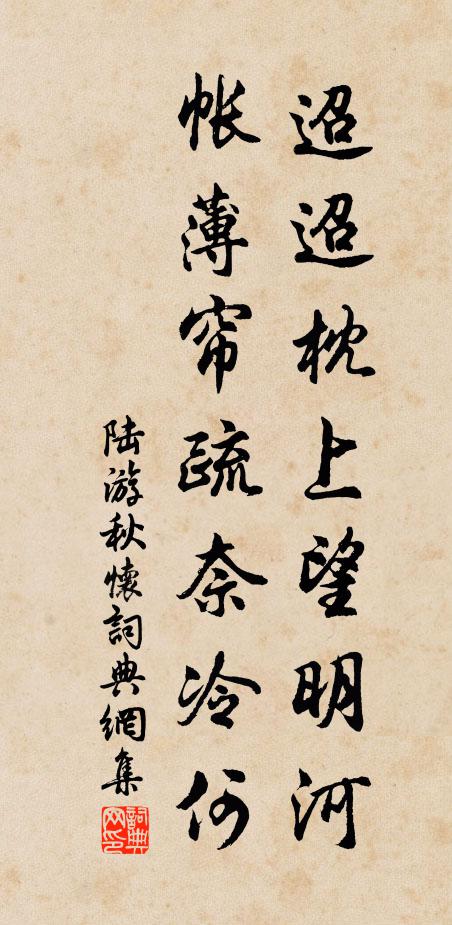 迢迢枕上望明河
帐薄帘疏奈冷何
陆游秋懷詞典網集
詞典
网印